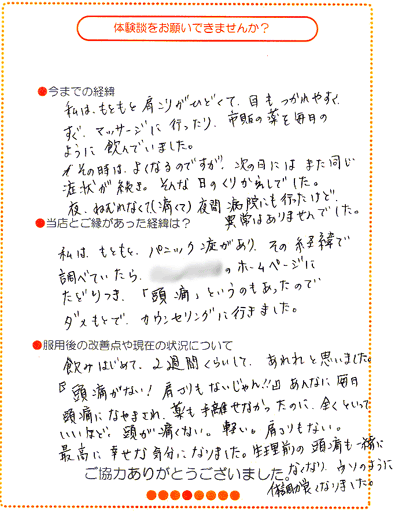 体験談をお願いできませんか？
●今までの経緯
私は、もともと肩こりがひどくて、目もつかれやすく、
すぐ、マッサージに行ったり、市販の薬を毎日の
ように飲んでいました。
その時は、よくなるのですが、次の日にはまた同じ
症状が続き。そんな日のくり返しでした。
夜、ねむれなくて(痛くて)夜間病院にも行ったけど
異常はありませんでした。
●当店とご縁があった経緯は？
私は、もともと、パニック症があり、その経緯で
調べていたら、
のホームページに
たどりつき、「頭痛」というのもあったので
ダメもとで、カウンセリングに行きました。
●服用後の改善点や現在の状況について
飲みはじめて、2週間くらいして、あれれと思いました。
『頭痛がない！肩こりもないじゃん!!』あんなに毎日
頭痛になやまされ、薬も手離せなかったのに、全くといって
いいほど、頭が痛くない。軽い。肩こりもない。
最高に幸せな気分になりました。生理前の頭痛も一緒に
なくなり、ウソのように
体調が良くなりました。
ご協力ありがとうございました。